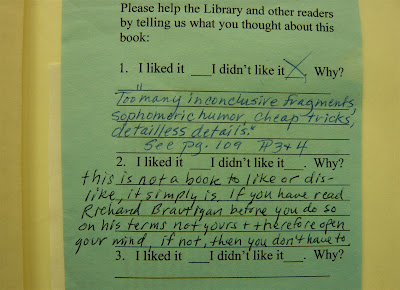 Please help the Library and other readers
by telling us what you thought about this
book:
1. I liked it ___I didn't like it_X_. Why?
"Too many inconclusive fragments,
sophomoric humor, cheap tricks,
detailless details."
See pg. 109 ¶3+4
2. I liked it ___I didn't like it___. Why?
this is not a book to like or dis-
like, it simply is. If you have read
Richard Brautigan before you do so
on his terms not yours + therefore open
your mind, if not, then you don't have to.
3. I liked it ___I didn't like it___. Why?